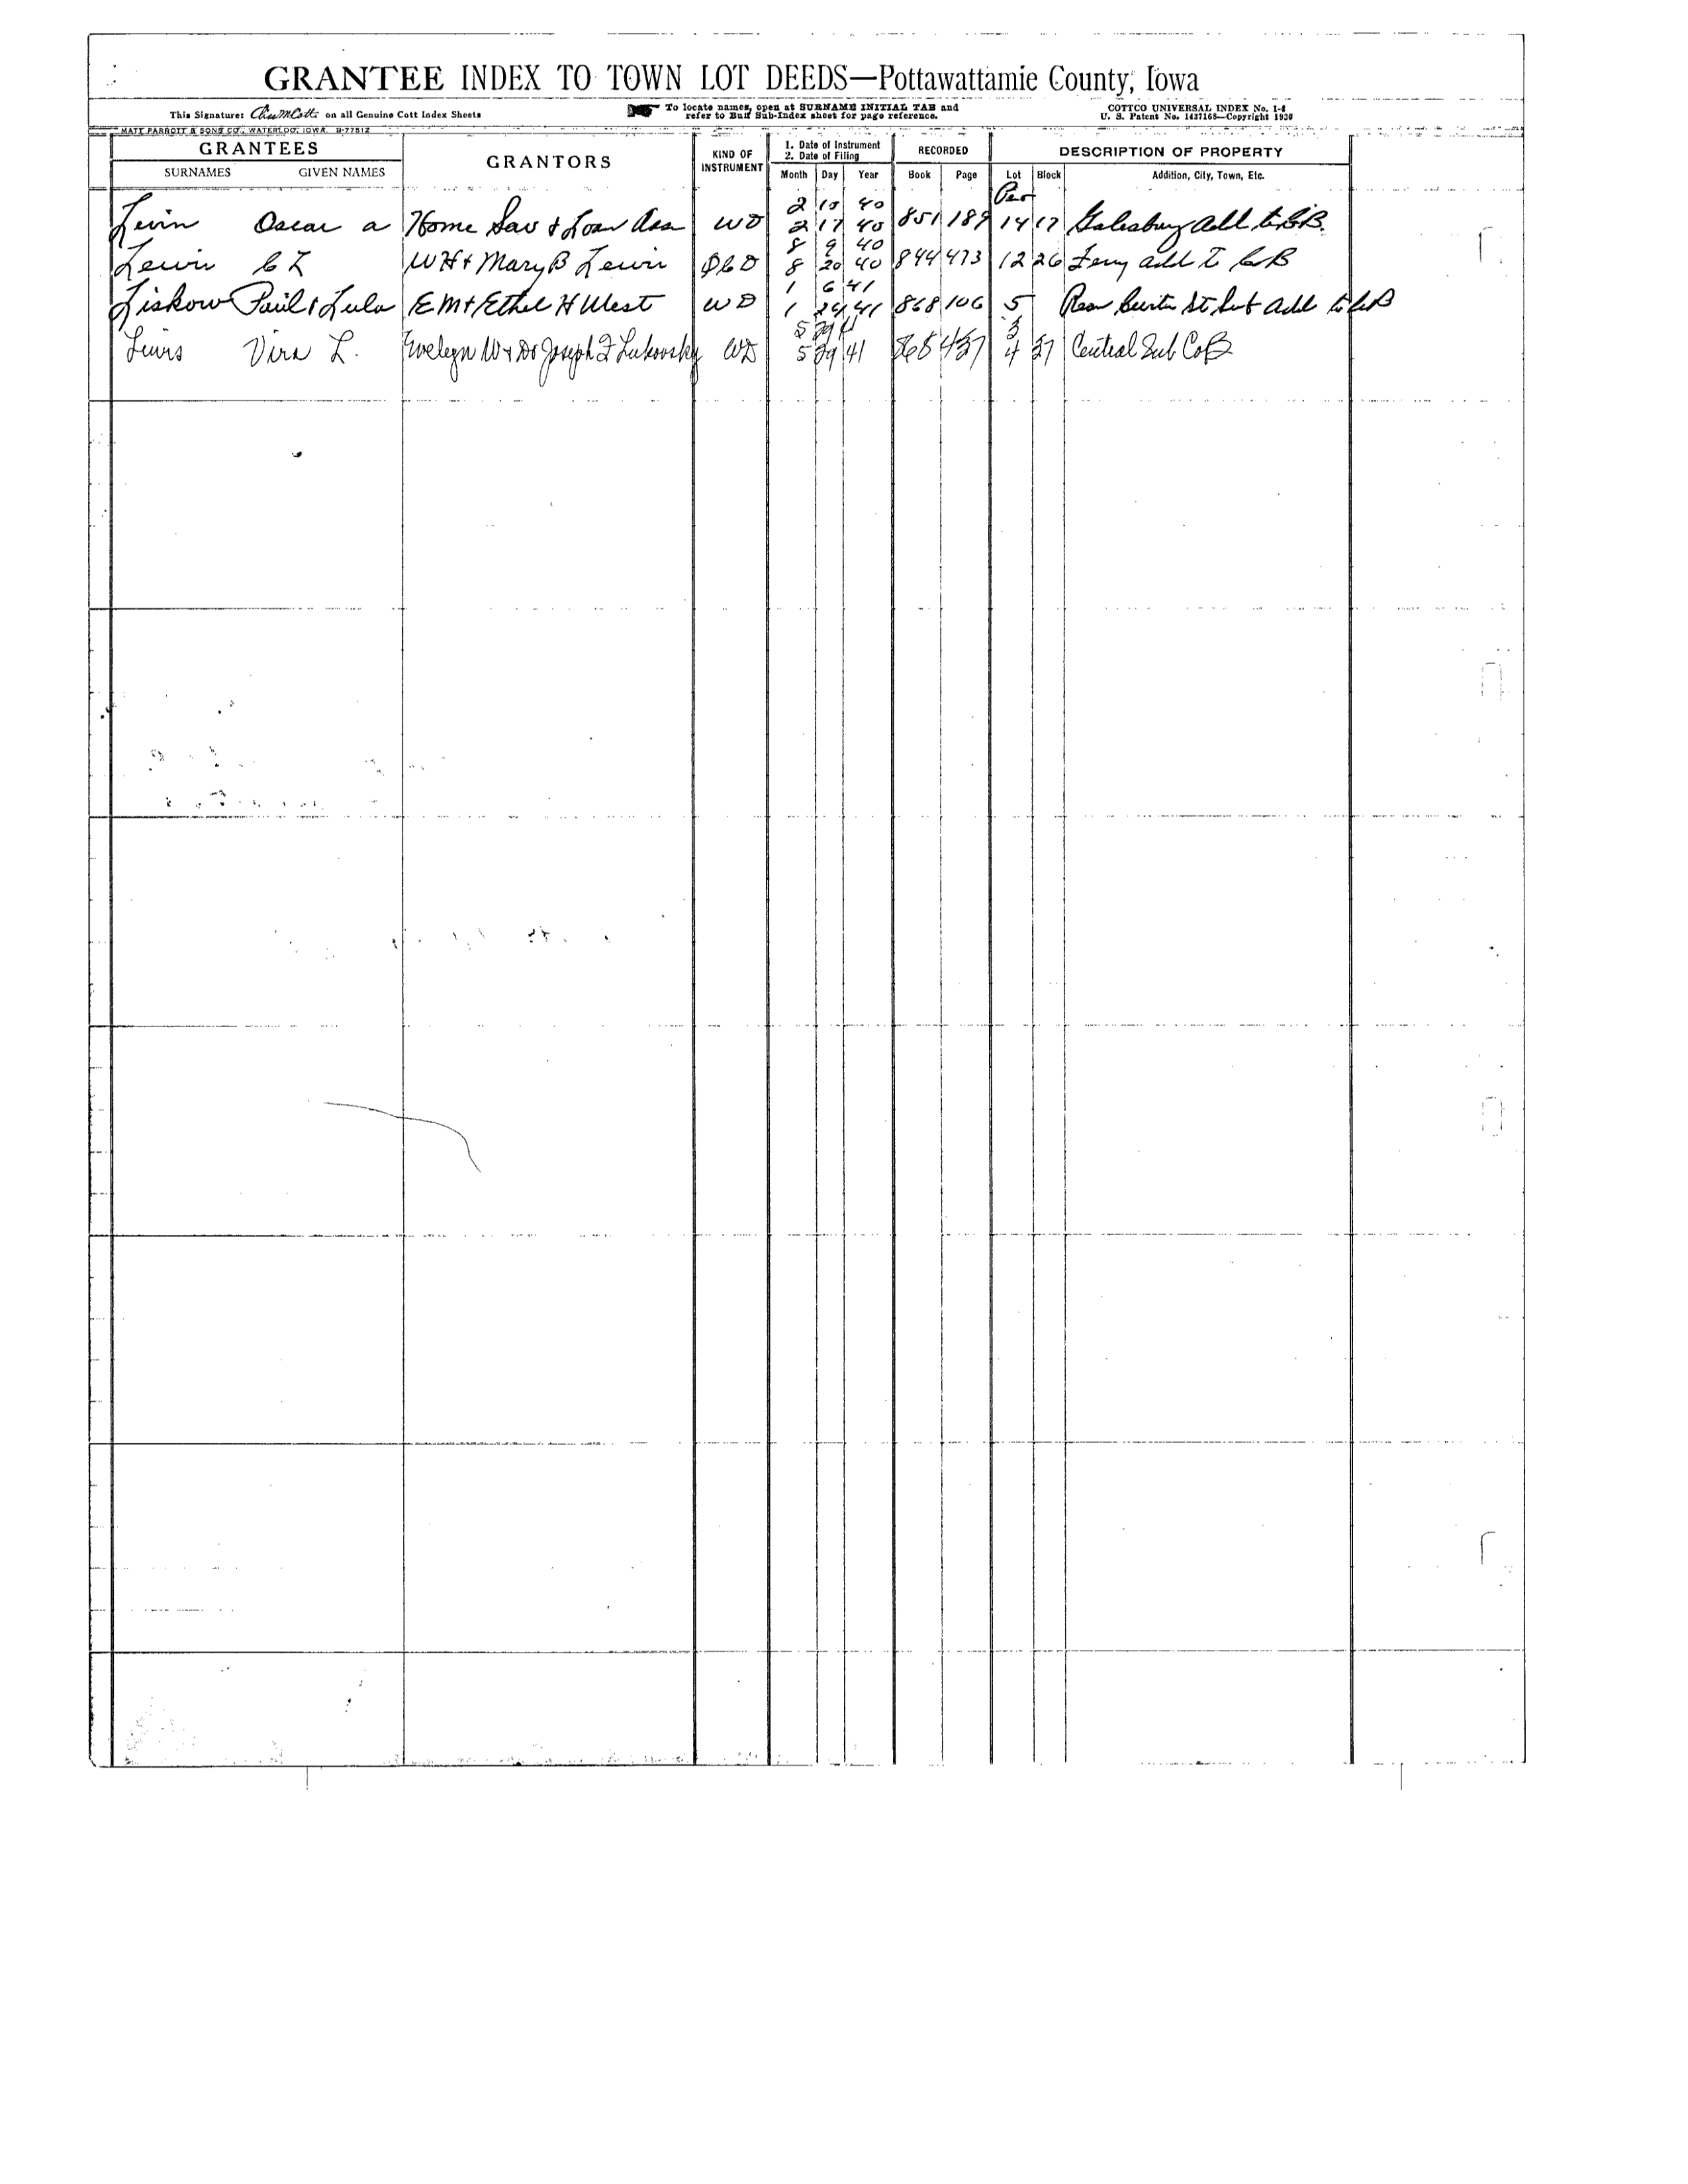 GRANTEE INDEX TO TOWN LOT DEEDS—Pottawattamie County, Iowa
This Signature: on all Genuine Cott Index Sheets
To locate names, open at SURNAME INITIAL TAB and
refer to Buff Sub-Index sheet for page reference.
COTTCO UNIVERSAL INDEX No. 1-4
U. S. Patent No. 1437168—Copyright 1930
MATT PARROTT & SONS CO., WATERLOO, IOWA B-77512
GRANTEES
SURNAMES GIVEN NAMES
GRANTORS
KIND OF
INSTRUMENT
1. Date of Instrument
2. Date of Filing
Month Day Year
RECORDED
Book Page
DESCRIPTION OF PROPERTY
Lot Block Addition, City, Town, Etc.
2 10 40
Levin Oscar A Home Sav & Loan Assn WD 2 17 40 851 189 14 17 Galesburg Add to CB
8 9 40
Lewis C L W H & Mary B Lewis QCD 8 20 40 844 473 12 26 Ferry Add To CB
1 6 41
Liskow Paul & Lula E M & Ethel H West WD 1 24 41 868 106 5 St Sub Add to CB
5 29 41 3
Lewis Vira L. Evelyn W & Dr Joseph F WD 5 29 41 4 37 Central Sub CoB